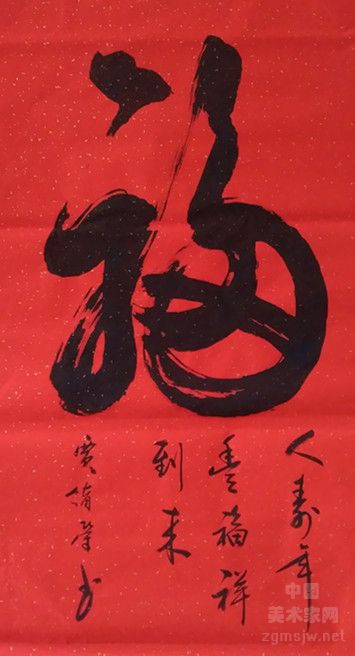 福
人寿年
豐福祥
到来
荣书
中国
美术家网
zgmsjw.net